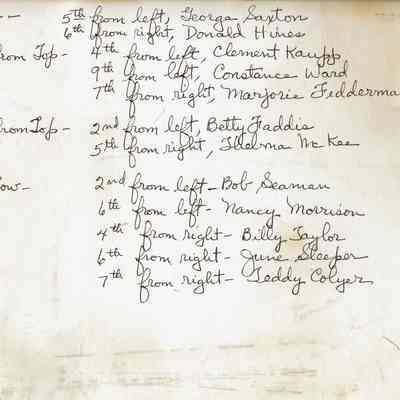 -- 5th from left, George Saxton
6th from right, Donald Hines
from Top- 4th from left, Clement Kaupp
9th from left, Constance Ward
7th from right, Marjorie Fedderma
from Top- 2nd from left, Betty Faddis
5th from right, Thelma McKee
ow- 2nd from left- Bob Seaman
6th from left- Nancy Morrison
4th from right- Billy Taylor
6th from right- June Sleeper
7th from right- Teddy Colyer